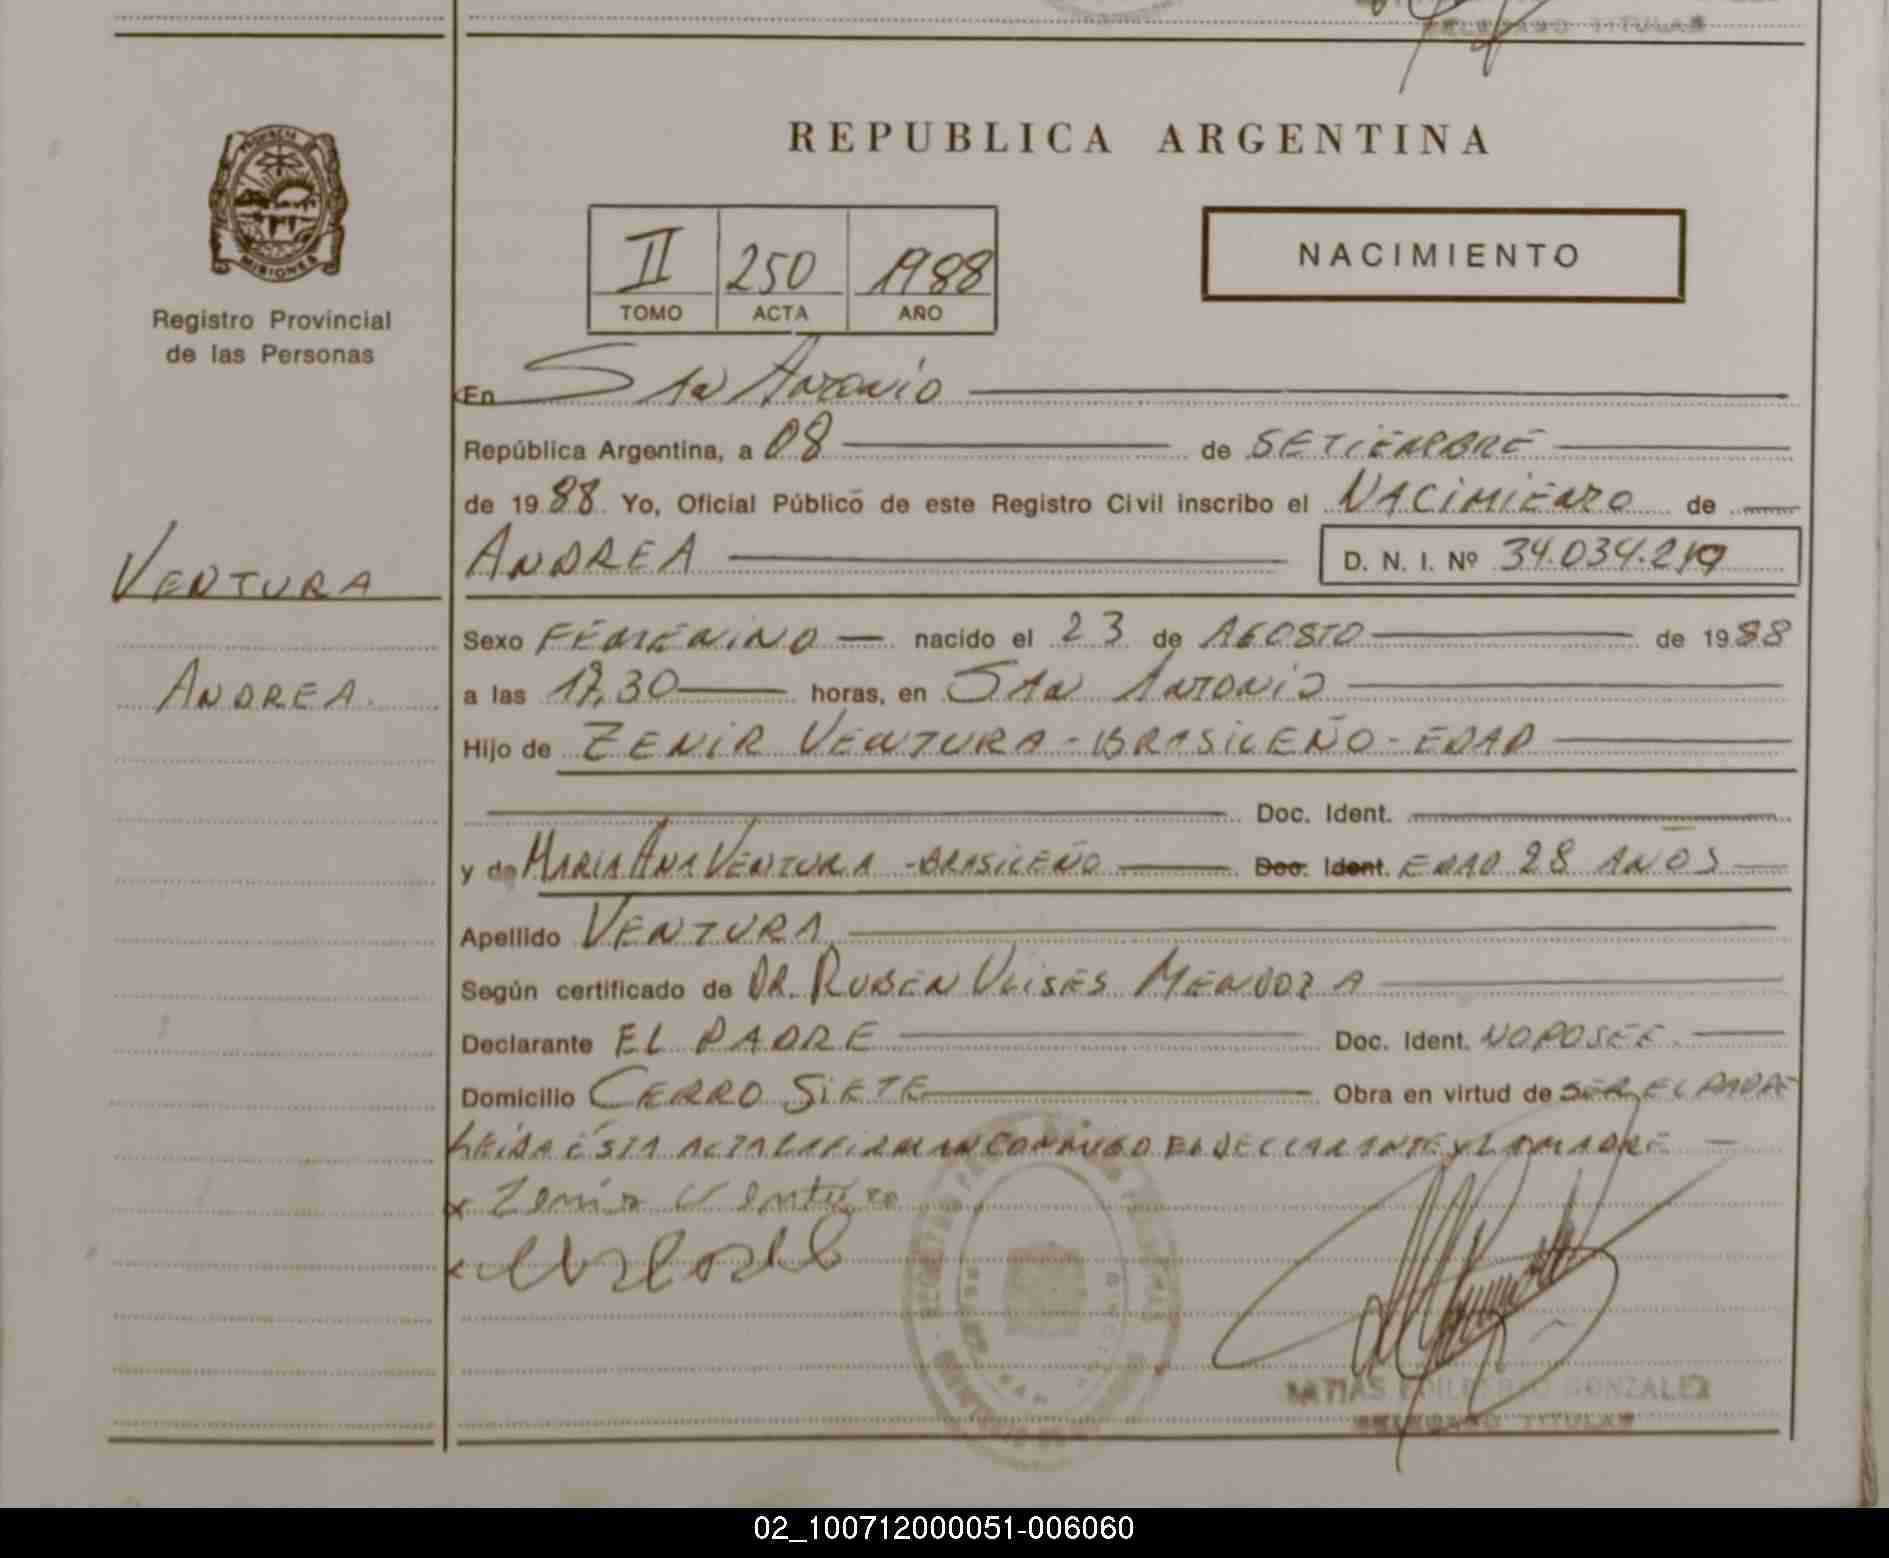 TITULAR
REPUBLICA ARGENTINA
PROVINCIA DE
MISIONES
Registro Provincial
de las Personas
II 250 1988
TOMO ACTA AÑO
NACIMIENTO
En San Antonio
República Argentina, a 08 de SETIEMBRE
de 1988 Yo, Oficial Público de este Registro Civil inscribo el NACIMIENTO de
VENTURA
ANDREA D. N. I. Nº 34.034.219
Sexo FEMENINO nacido el 23 de AGOSTO de 1988
ANDREA.
a las 17,30 horas, en SAN ANTONIO
Hijo de ZENIR VENTURA - BRASILEÑO - EDAD
Doc. Ident.
y de MARIA ANA VENTURA - BRASILEÑO Doc. Ident. EDAD 28 AÑOS
Apellido VENTURA
Según certificado de DR. RUBEN ULISES MENDOZA
Declarante EL PADRE Doc. Ident. NO POSEE.
Domicilio CERRO SIETE Obra en virtud de SER EL PADRE
LEIDA ESTA ACTA LA FIRMAN CONMIGO EL DECLARANTE Y LA MADRE
x Zenir Ventura
GONZALEZ
DELEGADO TITULAR
02_100712000051-006060